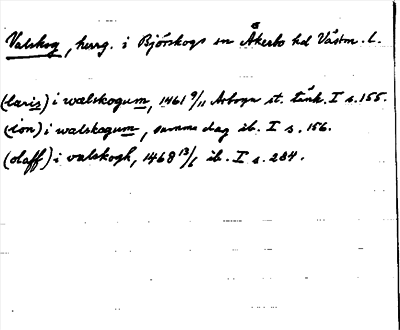 Valskog, herrg. i Björskogs sn Åkerbo hd Västm. l.
(laris) i wælskogum, 1461 9/11 Arboga st. tänk. I s. 155.
(ion) i walskogum, samma dag ib. I s. 156.
(olaff) i valskogh, 1468 13/6 ib. I s. 284.